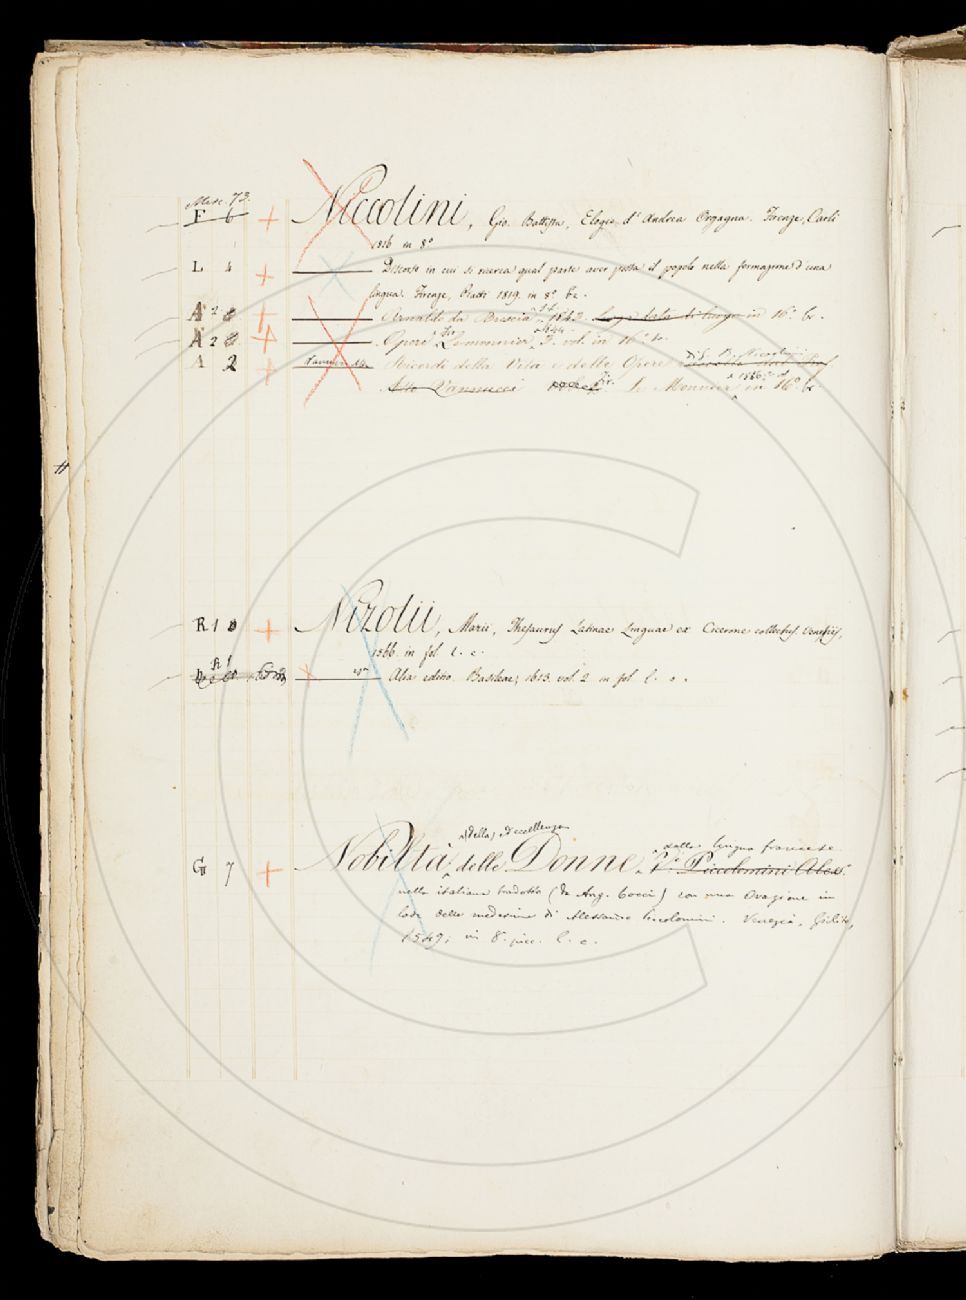 Misc. 73.
F 6 + Niccolini, Gio. Battista, Elogio d'Andrea Orgagna. Firenze, Carli
1816 in 8º
L 4 + Discorso in cui si ricerca qual parte aver possa il popolo nella formazione d'una
lingua. Firenze, Piatti 1819. in 8º
A 2 + Arnaldo da Brescia 1843 in 16º
A 2 + Opere Fir. Lemonnier, 1844. 3. vol. in 16º
A 2 + Vannucci Ricordi della Vita e delle Opere di G. B. Niccolini
Atto Vannucci Fir. Le Monnier 1866 in 16º
R 1 + Nizolii, Marii, Thesaurus Latinae Linguae ex Cicerone collectus. Venetiis,
1566. in fol l. c.
Alia editio. Basileae, 1613. vol. 2 in fol l. c.
(della) ed eccellenza
dalla lingua francese
G 7 + Nobiltà delle Donne Piccolomini Aless.
nella italiana tradotta (da Ang. Cocci) con una Orazione in
lode delle medesime di Alessandro Piccolomini. Venezia, Giolito,
1549; in 8º picc. l. c.